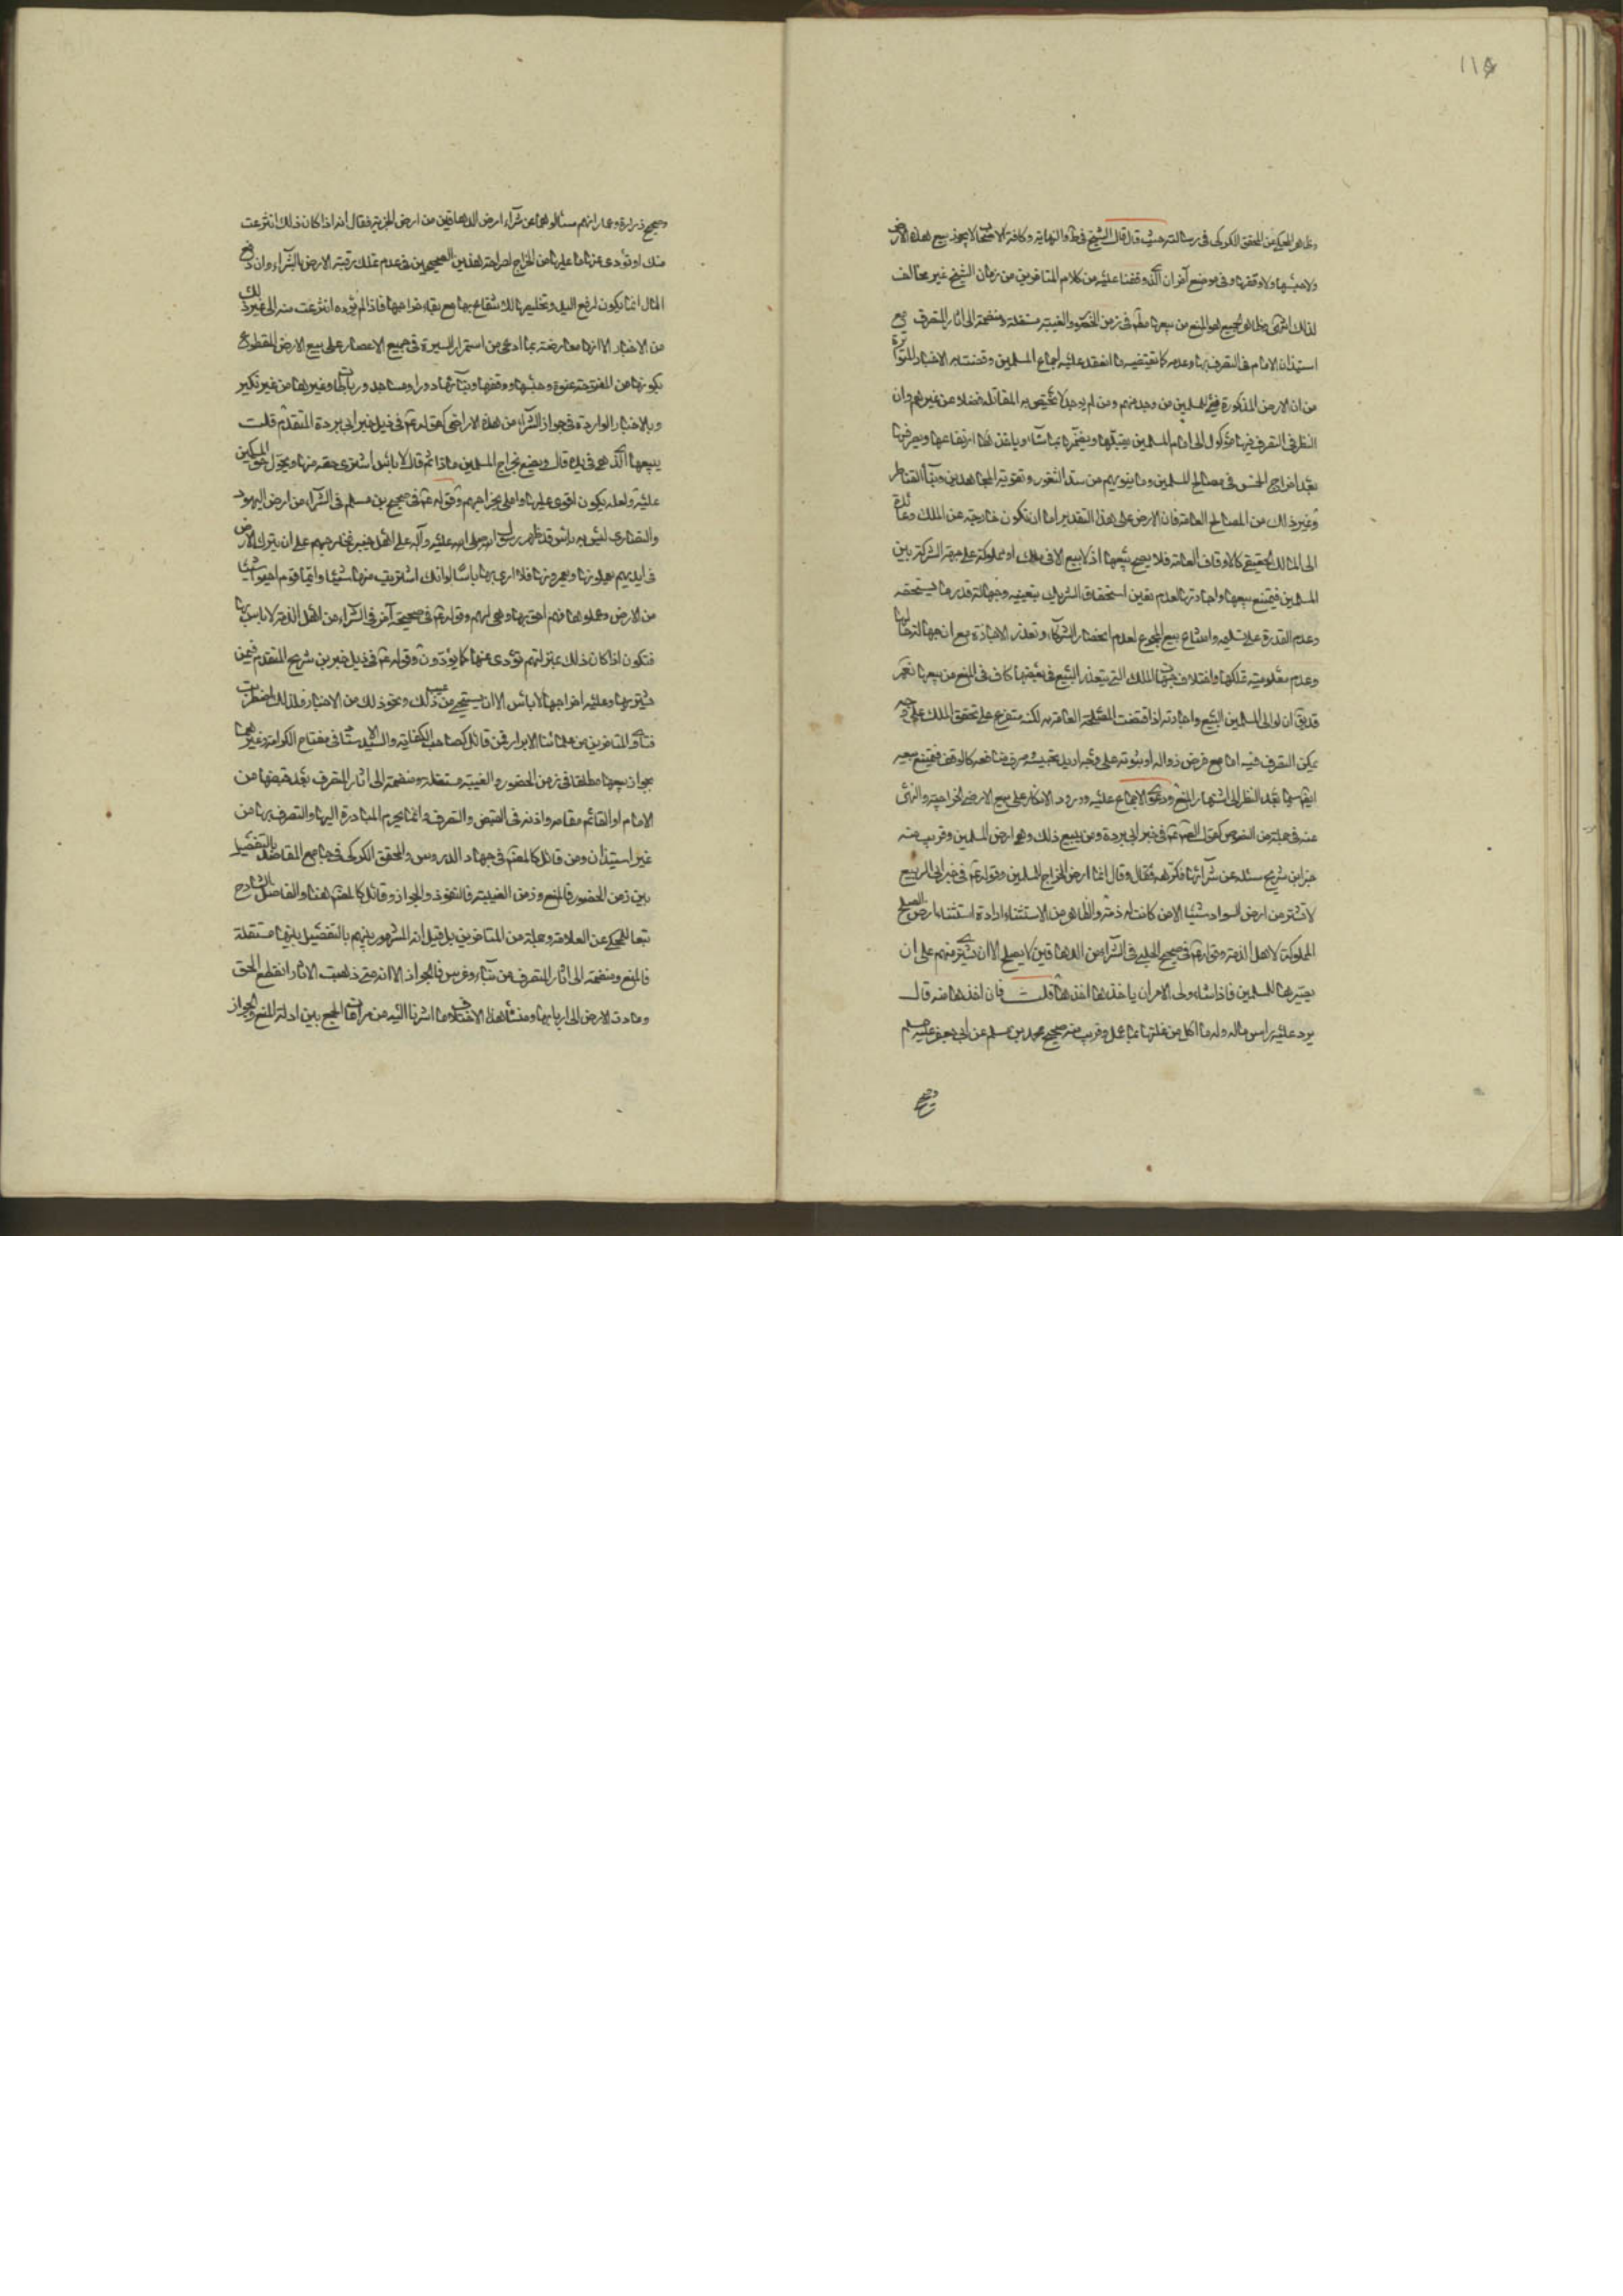 ١١٥
وظاهر المحكي عن المحقق الكركي في رسالته حيث قال قال الشيخ في ط والنهاية وكافة الاصحاب لا يجوز بيع هذه الارض
ولا هبتها ولا وقفها وفي موضع آخر ان الذي وقفنا عليه من كلام المتاخرين من زمان الشيخ غير مخالف
لذلك انتهى وظاهر الجميع هو المنع من بيعها مطلقا في زمن الحضور والغيبة مستقلة ومنضمة الى آثار المتصرف مع
استيذان الامام في التصرف بها وعدمه كما تقتضيه ما انعقد عليه اجماع المسلمين وقضت به الاخبار المتواترة
من ان الارض المذكورة فيء للمسلمين من وجد منهم ومن لم يوجد لا تختص به المقاتلة فضلا عن غيرهم وان
النظر في التصرف فيها موكول الى امام المسلمين يقبلها ويعمرها بما شاء وياخذ ارتفاعها ويصرفها
بعد اخراج الخمس في مصالح المسلمين وما ينوبهم من سد الثغور وتقوية المجاهدين وبناء القناطر
وغير ذلك من المصالح العامة فان الارض على هذا التقدير اما ان تكون خارجة عن الملك وعائدة
الى المالك الحقيقي كالاوقاف العامة فلا يصح بيعها اذ لا بيع الا في ملك او مملوكة على جهة الشركة بين
المسلمين فيمتنع بيعها واجارتها لعدم تعين استحقاق الشريك بتعينه وجهالة قدر ما يستحقه
وعدم القدرة على تسليمه وامتناع بيع المجموع لعدم انحصار الشركاء وتعذر الاجازة مع ان جهالة حالها
وعدم معلومية تملكها واختلاف جهات الملك التي يتعذر البيع في بعضها كاف في المنع من بيعها نعم
قد يق ان لوالي المسلمين البيع واجارته اذا اقتضت المصلحة العامة به لكنه متفرع على تحقق الملك على وجه
يمكن التصرف فيه اما مع فرض زواله او ثبوته على وجه اريد تحبيسه وصرف منافعه كالوقف فيمتنع بيعه
ايضا سيما بعد النظر الى اشتهار المنع ودعوى الاجماع عليه وورود الانكار على بيع الارض الخراجية والنهي
عنه في جملة من النصوص كقول الصادق ع في خبر ابي بردة ومن يبيع ذلك وهو ارض المسلمين وقريب منه
خبر ابن شريح سئله عن شرائها فكرهه فقال وقال انما ارض الخراج للمسلمين وقوله ع في خبر ابي الربيع
لا تشتر من ارض السواد شيئا الا من كانت له ذمة والظاهر من الاستثناء ارادة استثناء ارض الصلح
المملوكة لاهل الذمة وقوله ع في صحيح الحلبي في الشراء من الدهاقين لا يصلح الا ان تشتري منهم على ان
يصيرها للمسلمين فاذا شاء ولي الامر ان ياخذها اخذها قلت فان اخذها منه قال
يرد عليه راس ماله وله ما اكل من غلتها بما عمل وقريب منه صحيح محمد بن مسلم عن ابي جعفر عليه السلم
وصحيح
وصحيح زرارة وعمار انهم سئالوهما عن شراء ارض الدهاقين من ارض الجزية فقال انه اذا كان ذلك انتزعت
منك او تؤدي عنها ما عليها من الخراج لصراحة هذين الصحيحين في عدم تملك رقبة الارض بالشراء وان دفع
المال انما يكون لرفع اليد وتخليصها للانتفاع بها مع بقاء خراجها فاذا لم يؤده انتزعت منه الى غير ذلك
من الاخبار الا انها معارضة بما ادعي من استمرار السيرة في جميع الاعصار على بيع الارض المقطوع
بكونها من المفتوحة عنوة وهبتها ووقفها وبنائها دورا ومساجد ورباطات وغيرها من غير نكير
وبالاخبار الواردة في جواز الشراء من هذه الاراضي كقوله ع في ذيل خبر ابي بردة المتقدم قلت
يبيعها الذي هي في يده قال ويصنع بخراج المسلمين ماذا ثم قال لا بأس اشترى حقه منها ويحول حق المسلمين
عليه ولعله يكون اقوى عليها واملى بخراجهم وقوله ع في صحيح بن مسلم في الشراء من ارض اليهود
والنصارى ليس به باس قد ظهر رسول الله صلى الله عليه وآله على اهل خيبر فخارجهم على ان يترك الارض
في ايديهم يعملونها ويعمرونها فلا ارى بها باسا لو انك اشتريت منها شيئا وايما قوم احيوا شيئا
من الارض وعملوها فهم احق بها وهي لهم وقوله ع في صحيحة آخر في الشراء من اهل الذمة لا باس بها
فتكون اذا كان ذلك بمنزلتهم تؤدي عنها كما يؤدون وقوله ع في ذيل خبر بن شريح المتقدم فيمن
يشتريها وعليه خراجها لا بأس الا ان يستحيي من عيب ذلك ونحو ذلك من الاخبار ولذلك اضطربت
فتاوى المتاخرين من علمائنا الابرار فمن قائل كصاحب الكفاية والسيد الاستاد في مفتاح الكرامة وغيرهما
بجواز بيعها مطلقا في زمن الحضور والغيبة مستقلة ومنضمة الى آثار المتصرف بعد قبضها من
الامام او القائم مقامه واذنه في القبض والتصرف وانما يحرم المبادرة اليها والتصرف بها من
غير استيذان ومن قائل كالمصنف في جهاد الدروس والمحقق الكركي في جامع المقاصد بالتفصيل
بين زمن الحضور فالمنع وزمن الغيبة فالنفوذ والجواز وقائل كالمصنف هنا والفاضل الشارح
تبعا للمحكي عن العلامة وجملة من المتاخرين بل قيل انه المشهور بينهم بالتفصيل بينها مستقلة
فالمنع ومنضمة الى آثار المتصرف من بناء وغرس فالجواز الا انه متى ذهبت الاثار انقطع الحق
وعادت الارض الى اربابها ومنشأ هذا الاختلاف ما اشرنا اليه من مراعات الجمع بين ادلة المنع والجواز